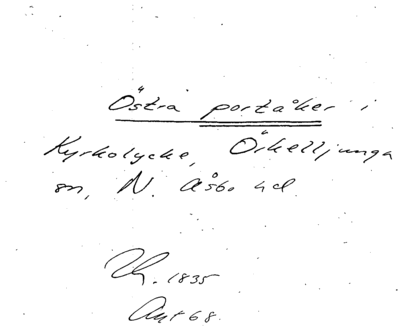 Östra portåker i
Kyrkolycke, Örkelljunga
sn, N. Åsbo hd.
1835